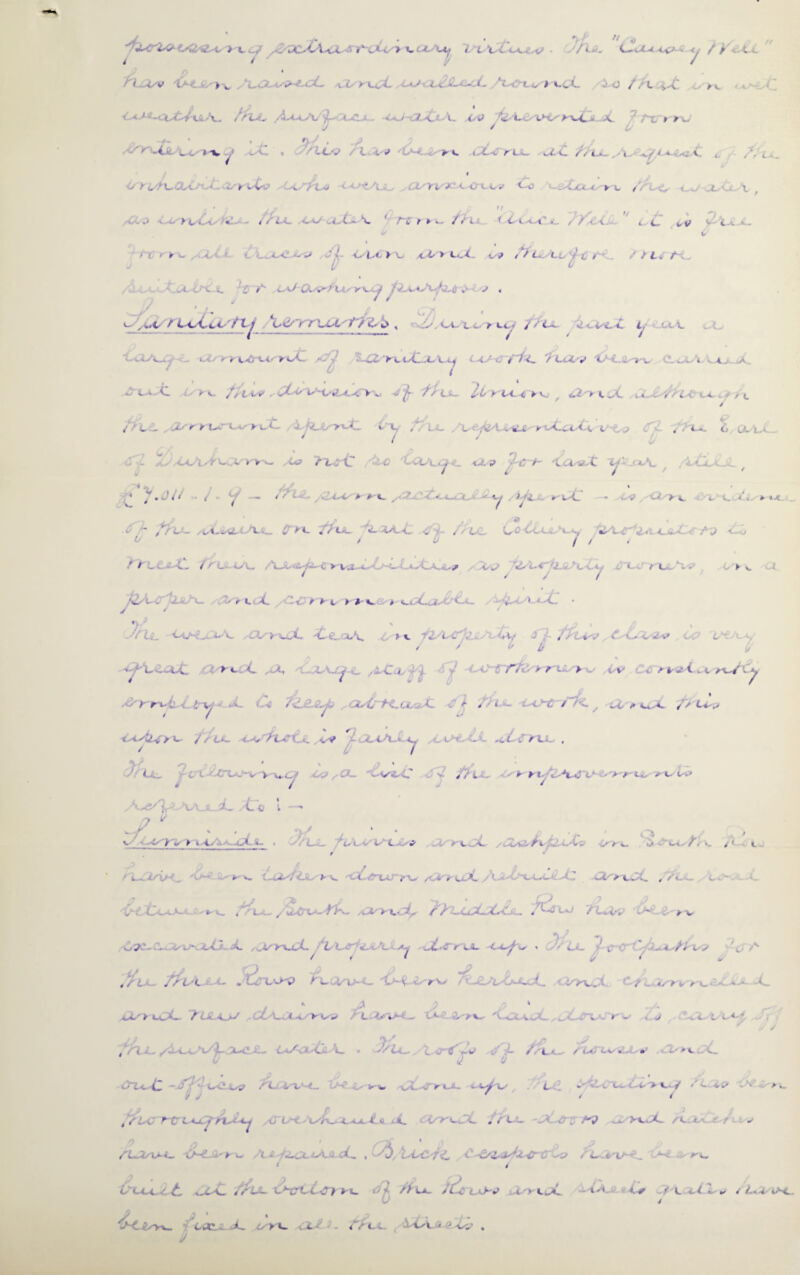 possessing extraordinary virtues. The "Causey Well"
has been housed and walled round so that in wet
weather the surface water is prevented from
entering it. This has been done at the request of the
inhabitants who were anxious to retain the water,
as unlike the water from the "Alice Well" it is free
from all traces of iron and is therefore more
suitable for washing purposes.
Sanitary remarks. During the past year a
large amount of sanitary work has been carried
out in this division of the Union, and although
the amount spent by the representatives of the Coal
of Durham is not so large as for last year, still,
the sum actually spent — is an evidence
of the desire on the part of the Colliery proprietors to
meet their responsibilities as property owners, in a
proper and commendable spirit.
The wear and tear in property of this class is very
great and a large staff of workmen is constantly
employed to keep abreast of the work, and this
upon the whole is fairly well done.
The following is a list of the improvements
referred to :—
Sunniside. The privies and ashpits in South Row
have been taken down and rebuilt and the road
between the South and Middle Row has been
excavated and properly done up. The footpaths for
the three Rows have been kerbed and channelled
and new drains have been laid down to carry off
the surface water. The roofs of the houses and
out-offices have been done up, the spouting has been
thoroughly overhauled and the doors and hatches
have been repaired. Brick cesspools have been
built at the bottom of the Rows and street grates have
been fixed in all the streets.